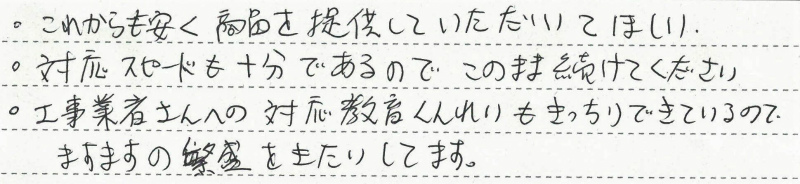 。これからも安く商品を提供していただいてほしい.
。対応スピードも十分であるのでこのまま続けてください
。工事業者さんへの対応教育くんれいもきっちりできているので.
ますますの繁盛をきたいしてます。